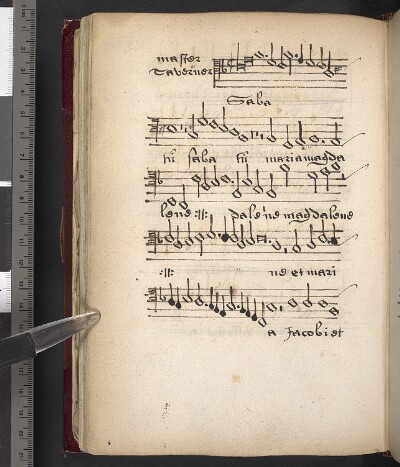 master
Taverner
Saba
ti saba ti maria magda
lene :||: dale ne magdalene
:||: ne et mari
a Jacobi et